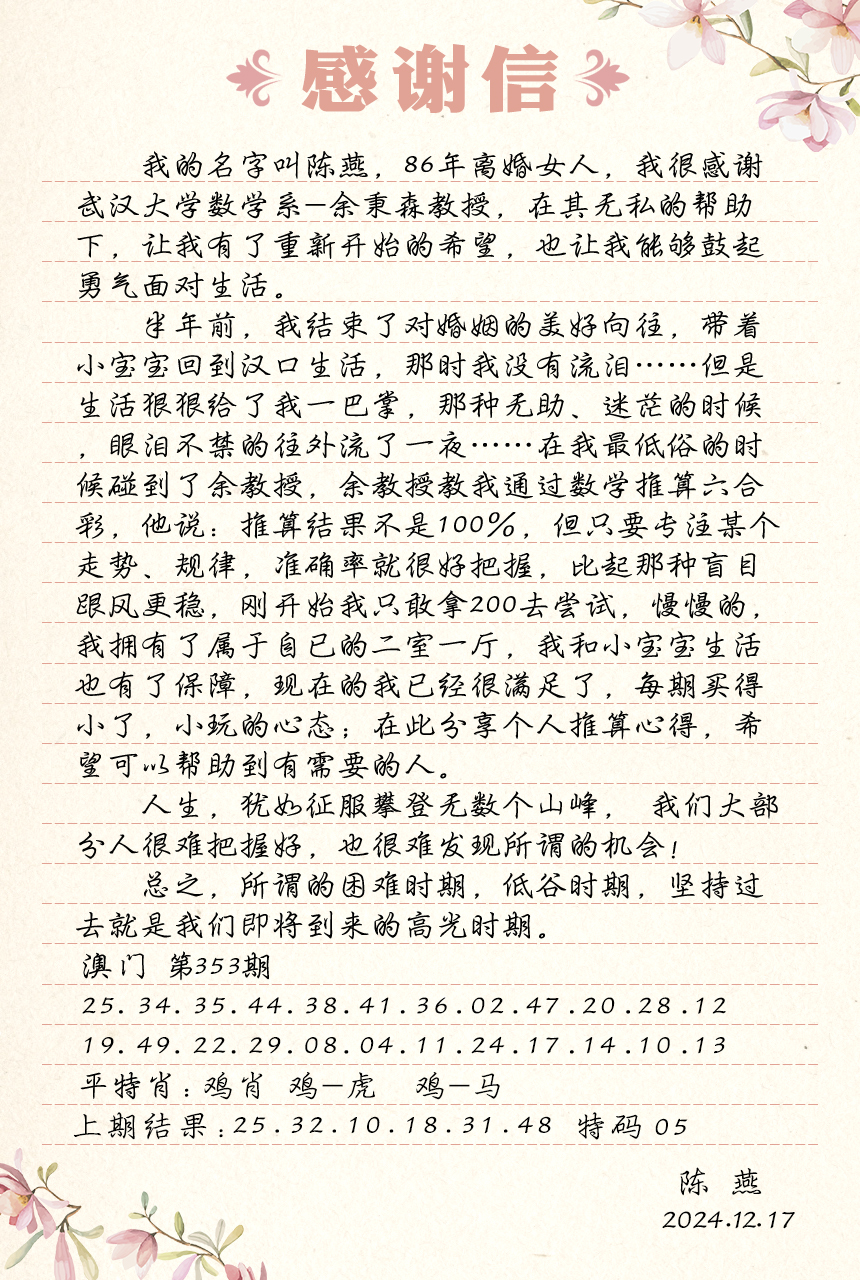 感谢信
我的名字叫陈燕，86年离婚女人，我很感谢
武汉大学数学系—余秉森教授，在其无私的帮助
下，让我有了重新开始的希望，也让我能够鼓起
勇气面对生活。
半年前，我结束了对婚姻的美好向往，带着
小宝宝回到汉口生活，那时我没有流泪……但是
生活狠狠给了我一巴掌，那种无助、迷茫的时候
，眼泪不禁的往外流了一夜……在我最低俗的时
候碰到了余教授，余教授教我通过数学推算六合
彩，他说：推算结果不是100%，但只要专注某个
走势、规律，准确率就很好把握，比起那种盲目
跟风更稳，刚开始我只敢拿200去尝试，慢慢的，
我拥有了属于自已的二室一厅，我和小宝宝生活
也有了保障，现在的我已经很满足了，每期买得
小了，小玩的心态；在此分享个人推算心得，希
望可以帮助到有需要的人。
人生，犹如征服攀登无数个山峰， 我们大部
分人很难把握好，也很难发现所谓的机会！
总之，所谓的困难时期，低谷时期，坚持过
去就是我们即将到来的高光时期。
澳门 第353期
25.34.35.44.38.41.36.02.47.20.28.12
19.49.22.29.08.04.11.24.17.14.10.13
平特肖：鸡肖 鸡—虎 鸡—马
上期结果：25.32.10.18.31.48 特码 05
陈 燕
2024.12.17